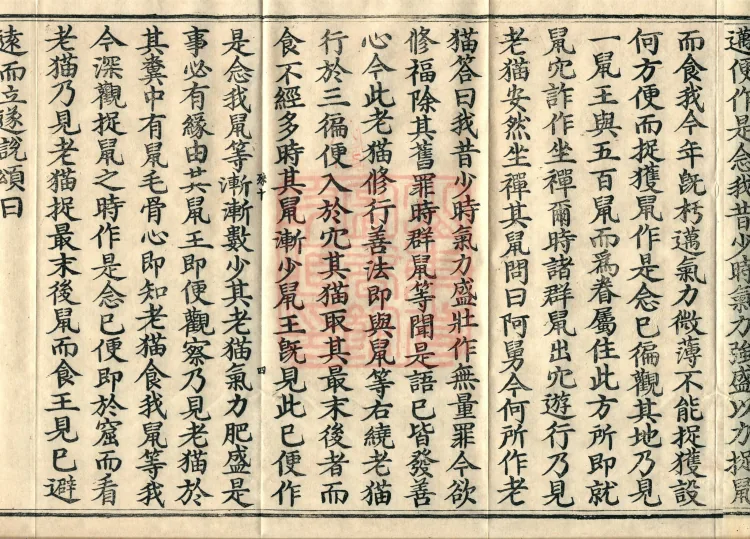 邁便作是念我昔少時氣力強盛以力捉鼠
而食我今年旣朽邁氣力微薄不能捉獲設
何方便而捉獲鼠作是念已徧觀其地乃見
一鼠王與五百鼠而爲眷屬住此方所即就
鼠穴詐作坐禪爾時諸群鼠出穴遊行乃見
老猫安然坐禪其鼠問曰阿舅今何所作老
猫答曰我昔少時氣力盛壯作無量罪今欲
修福除其舊罪時群鼠等聞是語已皆發善
心今此老猫修行善法即與鼠等右繞老猫
行於三徧便入於穴其猫取其最末後者而
食不經多時其鼠漸少鼠王旣見此已便作
是念我鼠等漸漸數少其老猫氣力肥盛是
事必有緣由其鼠王即便觀察乃見老猫於
其糞中有鼠毛骨心即知老猫食我鼠等我
今深觀捉鼠之時作是念已便即於窟而看
老猫乃見老猫捉最末後鼠而食王見已避
遠而立遂說頌曰
四